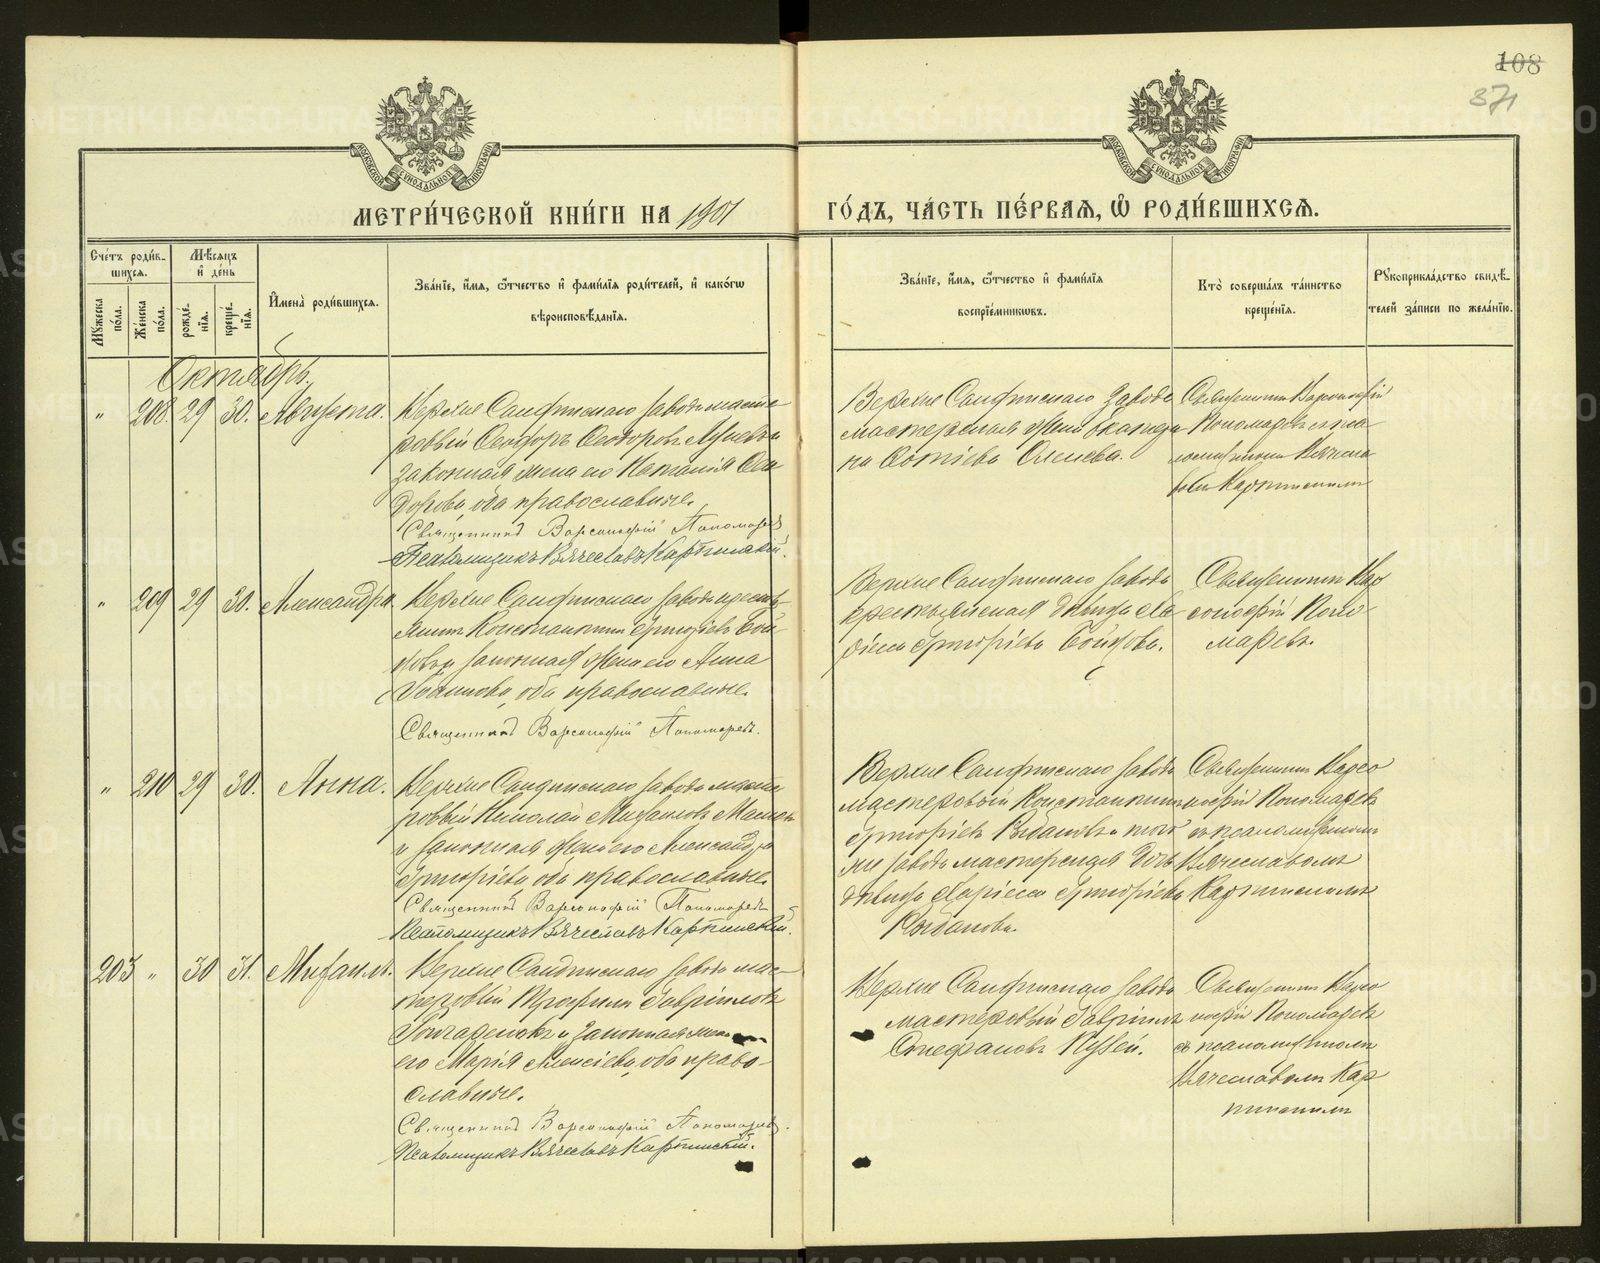 108
371
МЕТРИ́ЧЕСКОЙ КНИ́ГИ НА 1901
ГО́ДЪ, ЧА́СТЬ ПЕ́РВАѦ, Ѡ҆ РОДИ́ВШИХСѦ.
Сче́тъ роди́в-
шихся.
Мѣ́сяцъ
и҆ де́нь
Мꙋ́жеска
по́ла.
Же́нска
по́ла.
рожде́-
нїя.
креще́-
нїя.
И҆мена̀ роди́вшихся.
Зва́нїе, и҆́мя, ѻ҆́тчество и҆ фами́лїя роди́телей, и҆ како́гѡ
вѣроисповѣ́данїя.
Зва́нїе, и҆́мя, ѻ҆́тчество и҆ фами́лїя
воспрїе́мникѡвъ.
Кто̀ соверша́лъ та́инство
креще́нїя.
Рꙋкоприкла́дство свидѣ́-
телей за́писи по жела́нїю.
Октябрь.
" 208. 29 30. Августа.
Верхне Салдинскаго завода масте
ровый Ѳеодоръ Ѳеодоровъ и
законная жена его Наталія Ѳео
дорова, оба православные.
Священникъ Варсонофій Пономаревъ
Псаломщикъ Вячеславъ Карпинскій.
Верхне Салдинскаго завода
мастерская жена Екатери
на Фотіева Оленева.
Священникъ Варсонофій
Пономаревъ съ пса
ломщикомъ Вячесла
вомъ Карпинскимъ
" 209 29 30. Александра.
Верхне Салдинскаго завода крестья
янинъ Константинъ Григоріевъ
и законная жена его Анна
оба православные.
Священникъ Варсонофій Пономаревъ.
Верхне Салдинскаго завода
крестьянская дѣвица
Григоріева
Священникъ Вар
сонофій Поно
маревъ.
" 210 29 30. Анна.
Верхне Салдинскаго завода масте
ровый Николай Михаиловъ
и законная жена его Александра
Григоріева, оба православные.
Священникъ Варсонофій Пономаревъ
Псаломщикъ Вячеславъ Карпинскій.
Верхне Салдинскаго завода
мастеровый Константинъ
Григоріевъ и того
же завода мастерская дочь
дѣвица Лариса Григоріева
Священникъ Варсо
нофій Пономаревъ
съ псаломщикомъ
Вячеславомъ
Карпинскимъ
203 " 30 31. Михаилъ.
Верхне Салдинскаго завода мас-
теровый Трофимъ Гавріиловъ
и законная жена
его Марія Алексіева, оба право-
славные.
Священникъ Варсонофій Пономаревъ.
Псаломщикъ Вячеславъ Карпинскій.
Верхне Салдинскаго завода
мастеровый Гавріилъ
Стефановъ
Священникъ Варсо
нофій Пономаревъ
съ псаломщикомъ
Вячеславомъ Кар
пинскимъ
METRIKI.GASO-URAL.RU